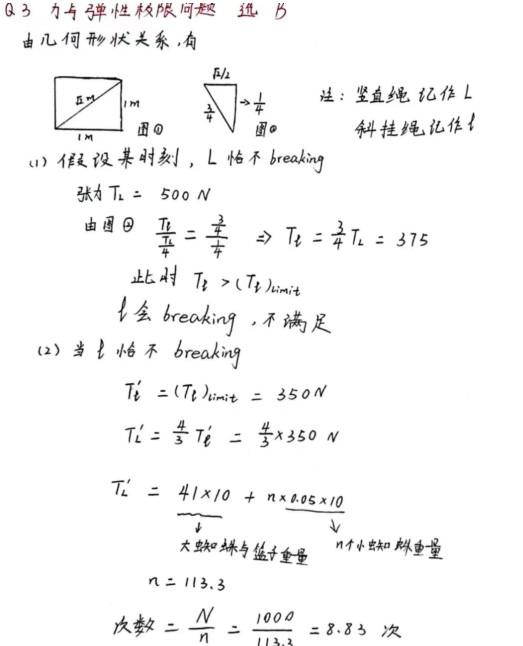 Q3 力与弹性极限问题 选 B
由几何形状关系,有
√2m 1m 1m 图①
√2/2 3/4 → 1/4 图②
注: 竖直绳记作 L
斜挂绳记作 ℓ
(1) 假设某时刻, L 恰不 breaking
张力 T_L = 500 N
由图② T_ℓ / (T_L/4) = (3/4) / (1/4) ⇒ T_ℓ = 3/4 T_L = 375
此时 T_ℓ > (T_ℓ)limit
ℓ会 breaking, 不满足
(2) 当 ℓ 恰不 breaking
T_ℓ' = (T_ℓ)limit = 350 N
T_L' = 4/3 T_ℓ' = 4/3 × 350 N
T_L' = 41×10 + n×0.05×10
大蜘蛛与篮子重量 n个小蜘蛛重量
n = 113.3
次数 = N/n = 1000/113.3 = 8.83 次